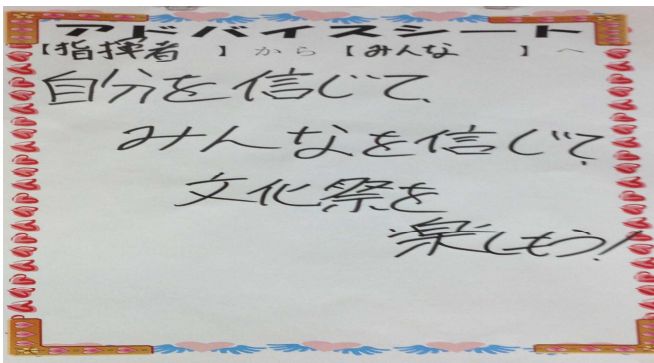 アドバイスシート
【指揮者 】から【みんな 】へ
自分を信じて、
みんなを信じて
文化祭を
楽しもう!